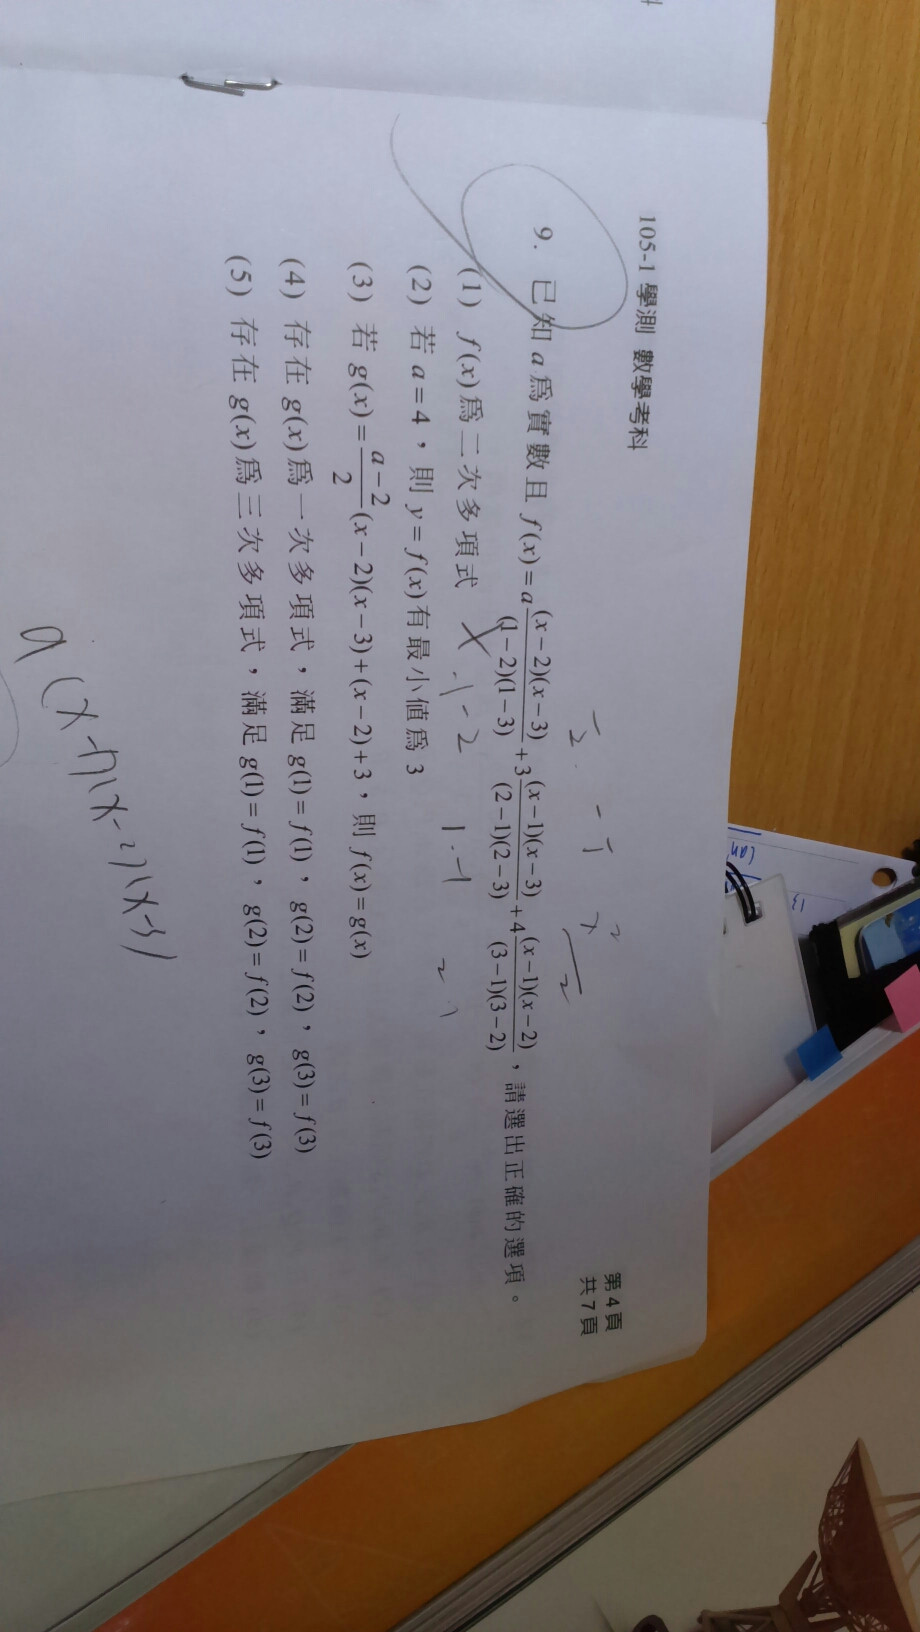 105-1 學測 數學考科
第 4 頁
共 7 頁
9. 已知 a 為實數且 f(x)=a\frac{(x-2)(x-3)}{(1-2)(1-3)}+3\frac{(x-1)(x-3)}{(2-1)(2-3)}+4\frac{(x-1)(x-2)}{(3-1)(3-2)}，請選出正確的選項。
(1) f(x)為二次多項式
(2) 若 a=4，則 y=f(x)有最小值為 3
(3) 若 g(x)=\frac{a-2}{2}(x-2)(x-3)+(x-2)+3，則 f(x)=g(x)
(4) 存在 g(x)為一次多項式，滿足 g(1)=f(1)，g(2)=f(2)，g(3)=f(3)
(5) 存在 g(x)為三次多項式，滿足 g(1)=f(1)，g(2)=f(2)，g(3)=f(3)
a(x-1)(x-2)(x-3)